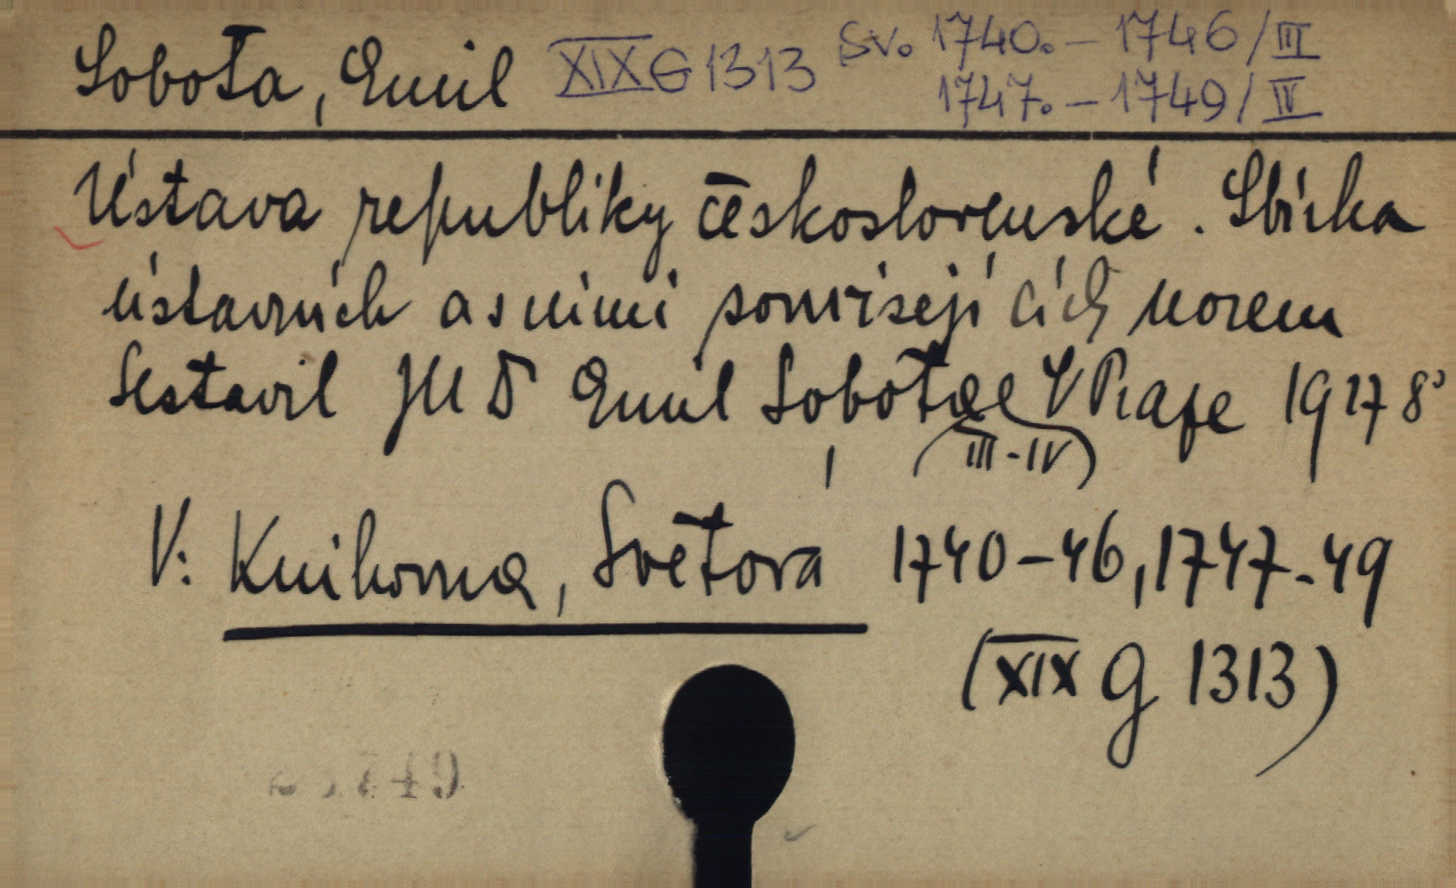 Sobota, Emil XIX G 1313 Sv. 1740. – 1746/III
1747. – 1749/IV
Ústava republiky československé. Sbírka
ústavních a s nimi souvisejících norem
Sestavil JUD Emil Sobota V Praze 1927 8°
(III-IV)
V: Knihovna, Světová 1740-46, 1747-49
(XIX G 1313)